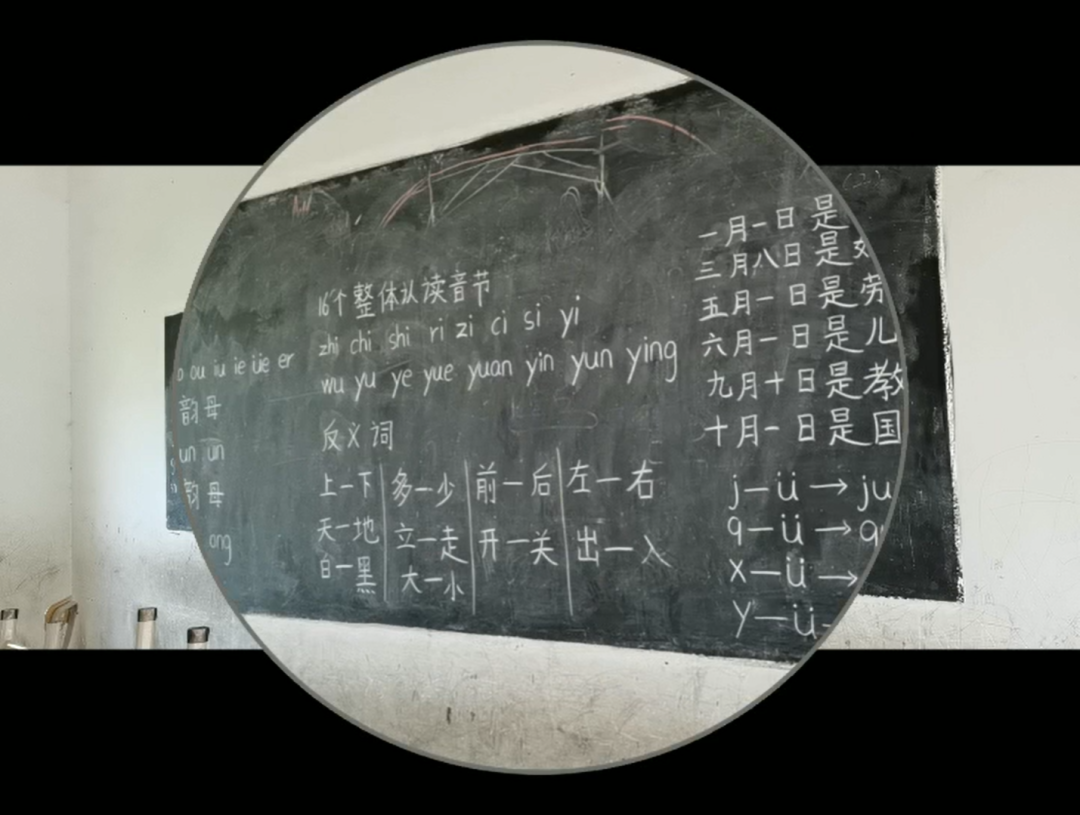 o ou iu ie üe er
韵母
un ün
韵母
ong
16个整体认读音节
zhi chi shi ri zi ci si yi
wu yu ye yue yuan yin yun ying
反义词
上—下 多—少 前—后 左—右
天—地 立—走 开—关 出—入
白—黑 大—小
一月一日是
三月八日是
五月一日是劳
六月一日是儿
九月十日是教
十月一日是国
j—ü→ju
q—ü→q
x—ü→
y—ü-